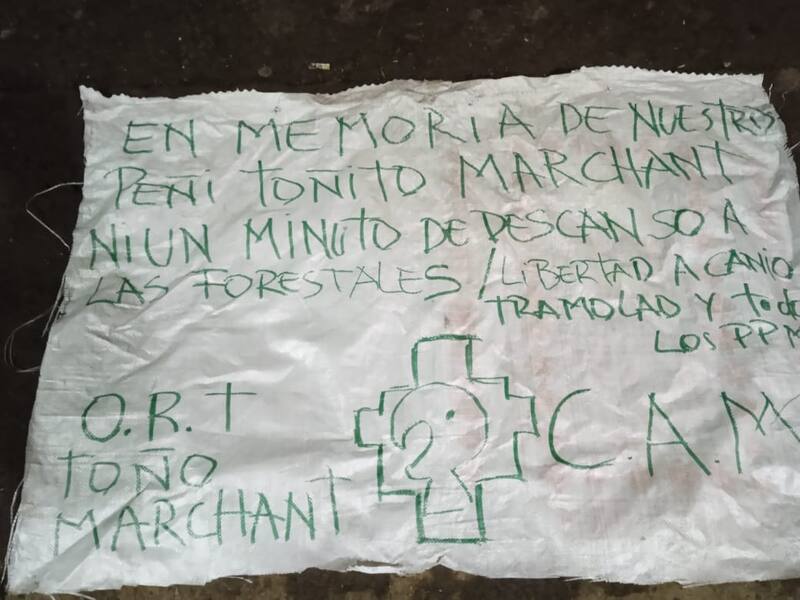 EN MEMORIA DE NUESTRES
PEÑI TOÑITO MARCHANT
NI UN MINUTO DE DESCANSO A
LAS FORESTALES / LIBERTAD A CANIO
TRAMOLAO Y tode
LOS PPM
O.R.T C.A.M
TOÑO
MARCHANT